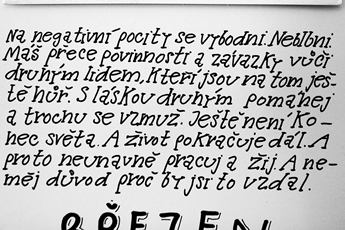 Na negativní pocity se vybodni. Neblbni.
Máš přece povinnosti a závazky vůči
druhým lidem, kteří jsou na tom ješ-
tě hůř. S láskou druhým pomáhej
a trochu se vzmuž. Ještě není ko-
nec světa. A život pokračuje dál. A
proto neúnavně pracuj a žij. A ne-
měj důvod proč by jsi to vzdal.
BŘEZEN